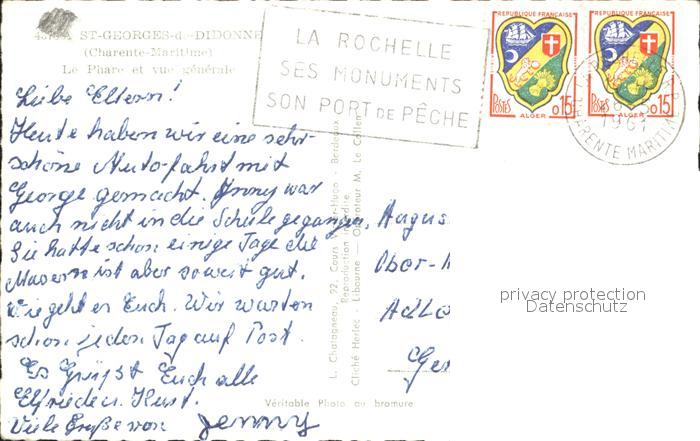 ST-GEORGES-de-DIDONNE
(Charente-Maritime)
Le Phare et vue générale
LA ROCHELLE
SES MONUMENTS
SON PORT DE PÊCHE
REPUBLIQUE FRANÇAISE
POSTES 0,15
ALGER
REPUBLIQUE FRANÇAISE
POSTES 0,15
ALGER
CHARENTE MARITIME
Liebe Eltern!
Heute haben wir eine sehr
schöne Autofahrt mit
George gemacht. Jenny war
auch nicht in die Schule gegangen,
Sie hatte schon einige Tage die
Masern ist aber soweit gut.
Wie geht es Euch. Wir warten
schon jeden Tag auf Post.
Es Grüßt Euch alle
Elfriede u. Kurt.
Viele Grüße von Jenny
L. Chatagneau, 22, Cours Victor-Hugo - Bordeaux
Reproduction interdite
Cliché Herlec - Libourne — Opérateur M. Le Collen
Véritable Photo au bromure
Augus
Ober-
Ger
privacy protection
Datenschutz